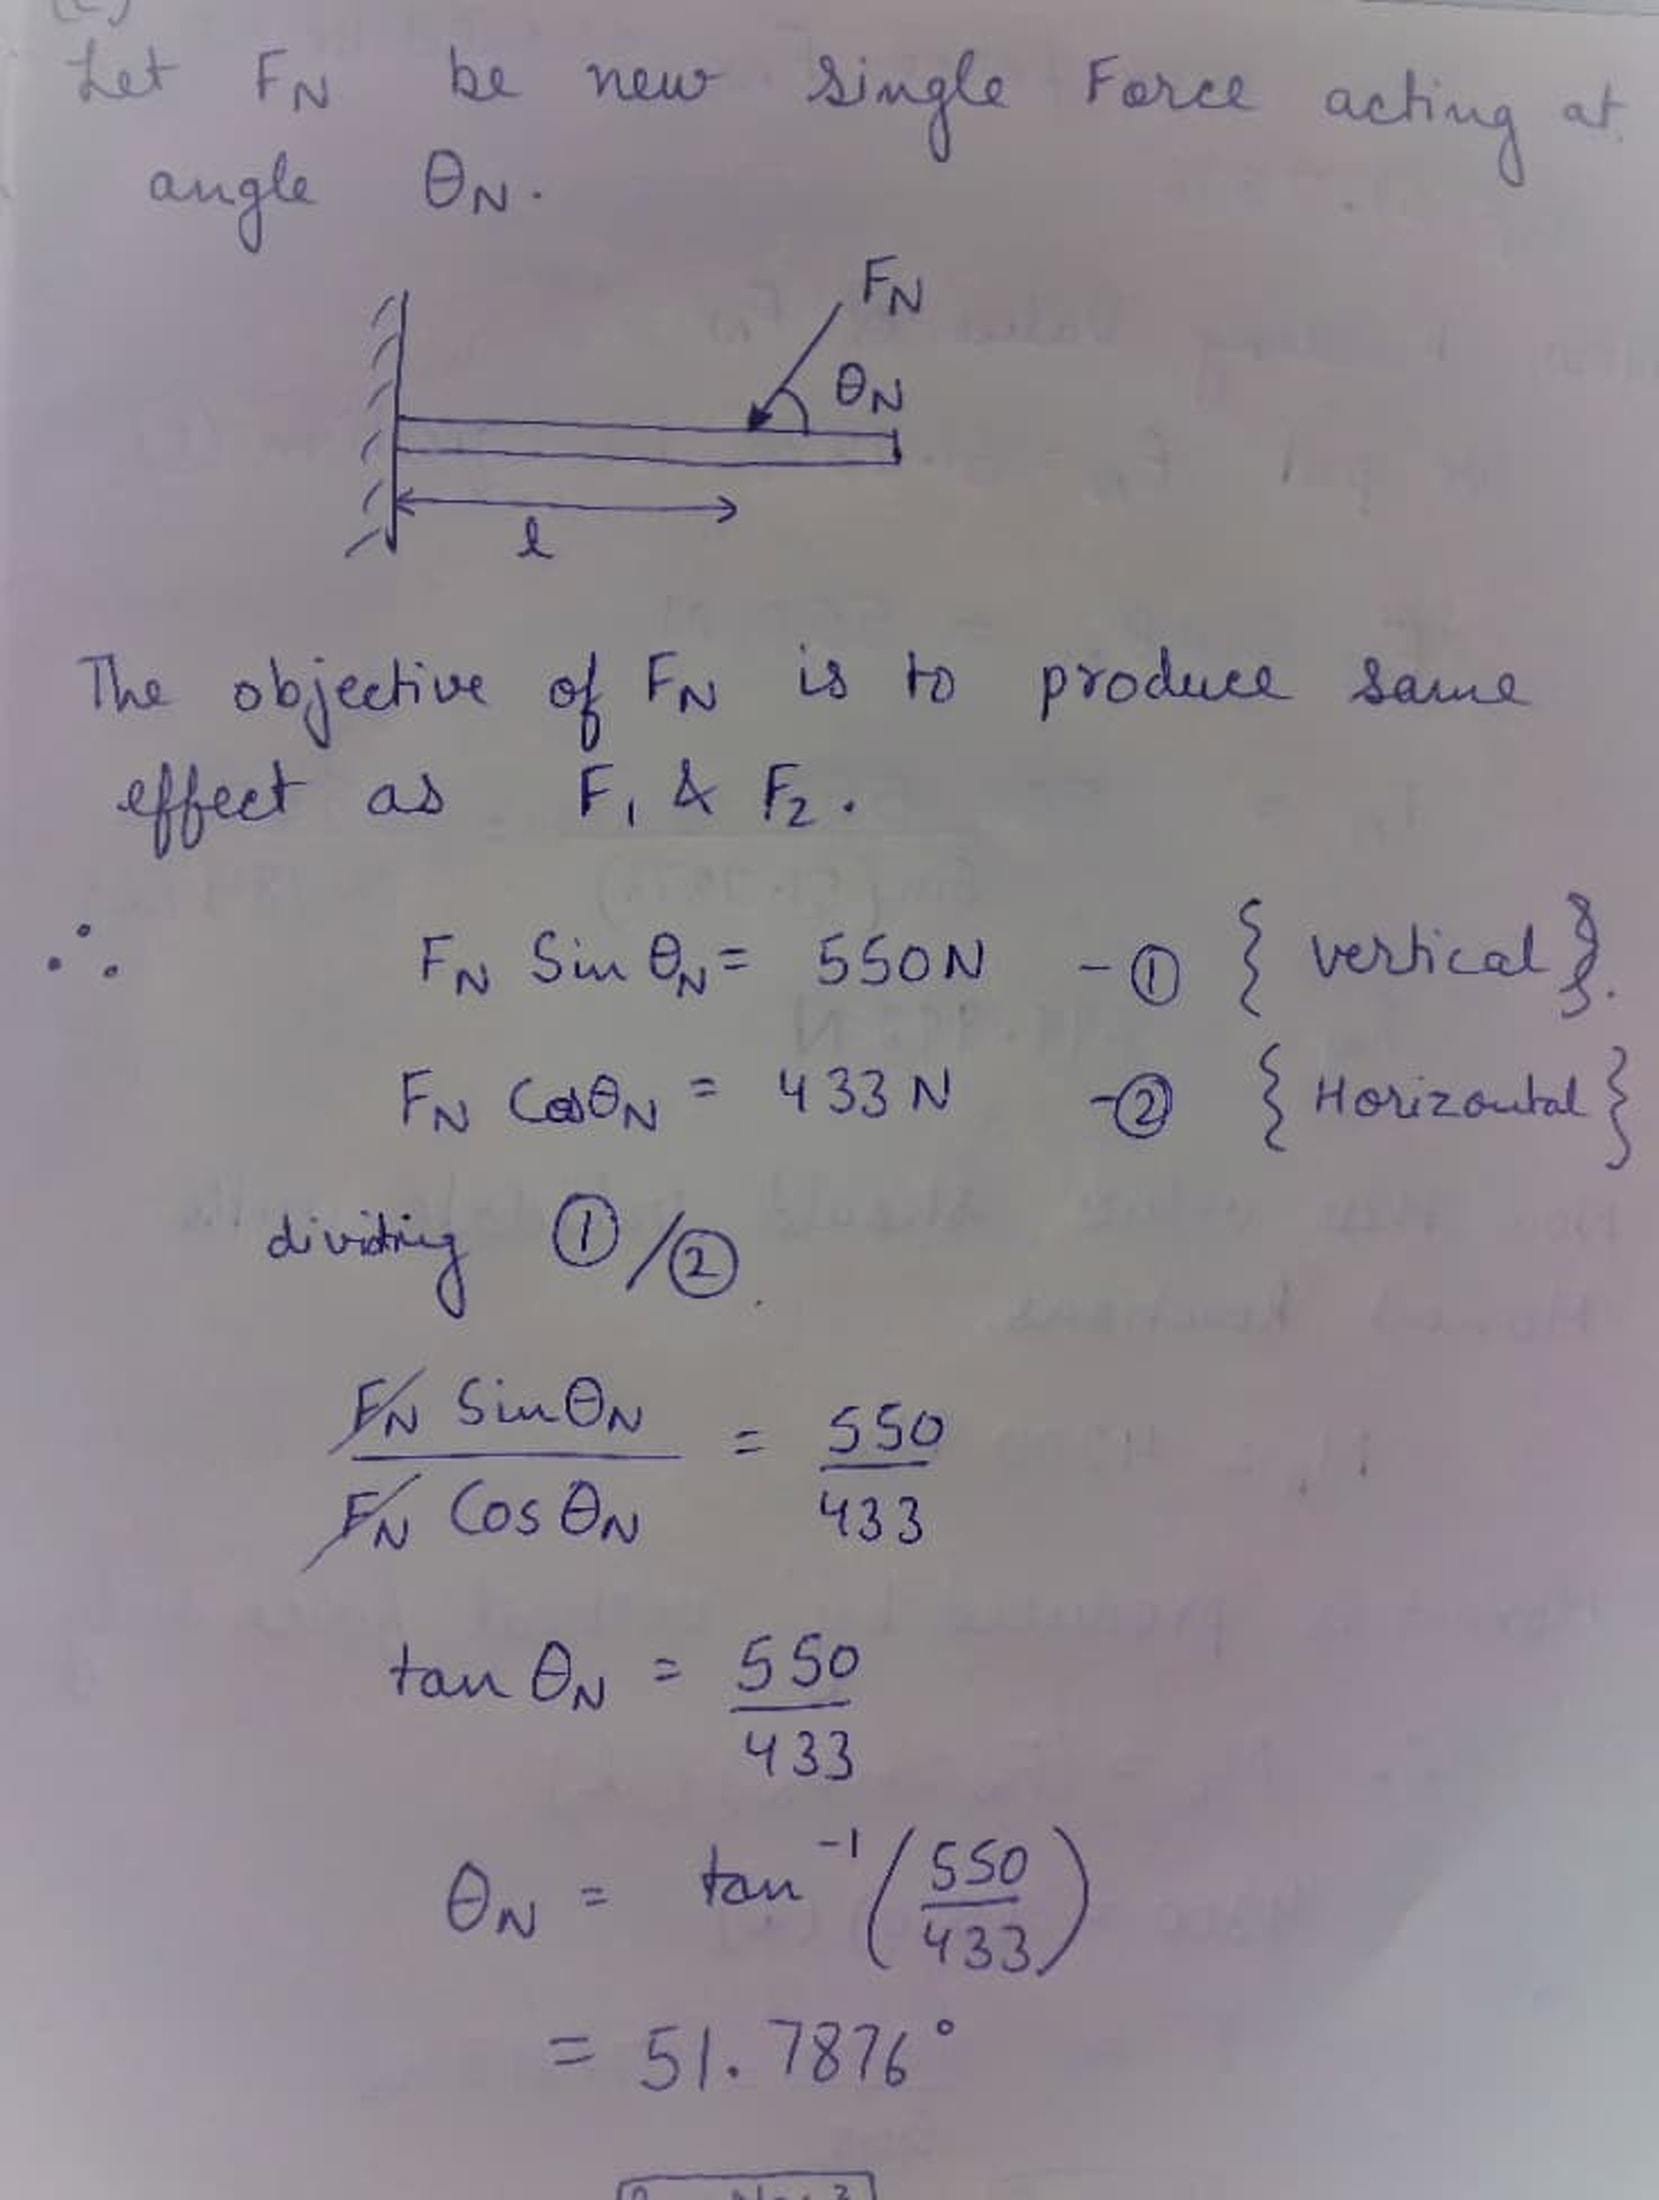 Let FN be new single Force acting at
angle θN.
FN
θN
l
The objective of FN is to produce same
effect as F1 & F2.
∴ FN Sin θN = 550N - ① { vertical }.
FN Cos θN = 433 N - ② { Horizontal }
dividing ① / ②.
FN Sin θN / FN Cos θN = 550 / 433
tan θN = 550 / 433
θN = tan⁻¹ ( 550 / 433 )
= 51.7876°